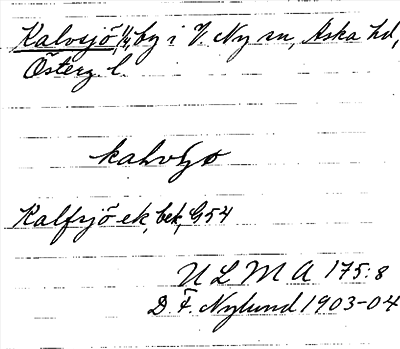 Kalvsjö 1/4, by i V. Ny sn, Aska hd,
Österg. l.
Kalfsjö ek, bek, G54
U L M A 175:8
D. F. Nylund 1903-04